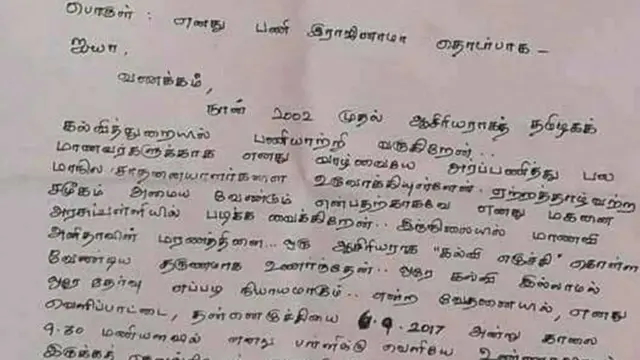 பொருள் : எனது பணி இராஜினாமா தொடர்பாக –
ஐயா,
வணக்கம்,
நான் 2002 முதல் ஆசிரியராகத் தமிழகக்
கல்வித்துறையில் பணியாற்றி வருகிறேன்..
மாணவர்களுக்காக எனது வாழ்வையே அர்ப்பணித்து பல
மாநில சாதனையாளர்களை உருவாக்கியுள்ளேன். ஏற்றத்தாழ்வற்ற
சமூகம் அமைய வேண்டும் என்பதற்காகவே எனது மகனை
அரசுப்பள்ளியில் படிக்க வைக்கிறேன்.. இந்நிலையில் மாணவி
அனிதாவின் மரணத்தினை... ஒரு ஆசிரியராக "கல்வி எழுச்சி" கொள்ள
வேண்டிய தருணமாக உணர்ந்தேன்.. ஒரே கல்வி இல்லாமல்
ஒரே தேர்வு எப்படி நியாயமாகும்.. என்ற வேதனையில், எனது
வெளிப்பாட்டை, தன்னெழுச்சியை 6.9.2017 அன்று காலை
9.30 மணியளவில் எனது பள்ளிக்கு வெளியே